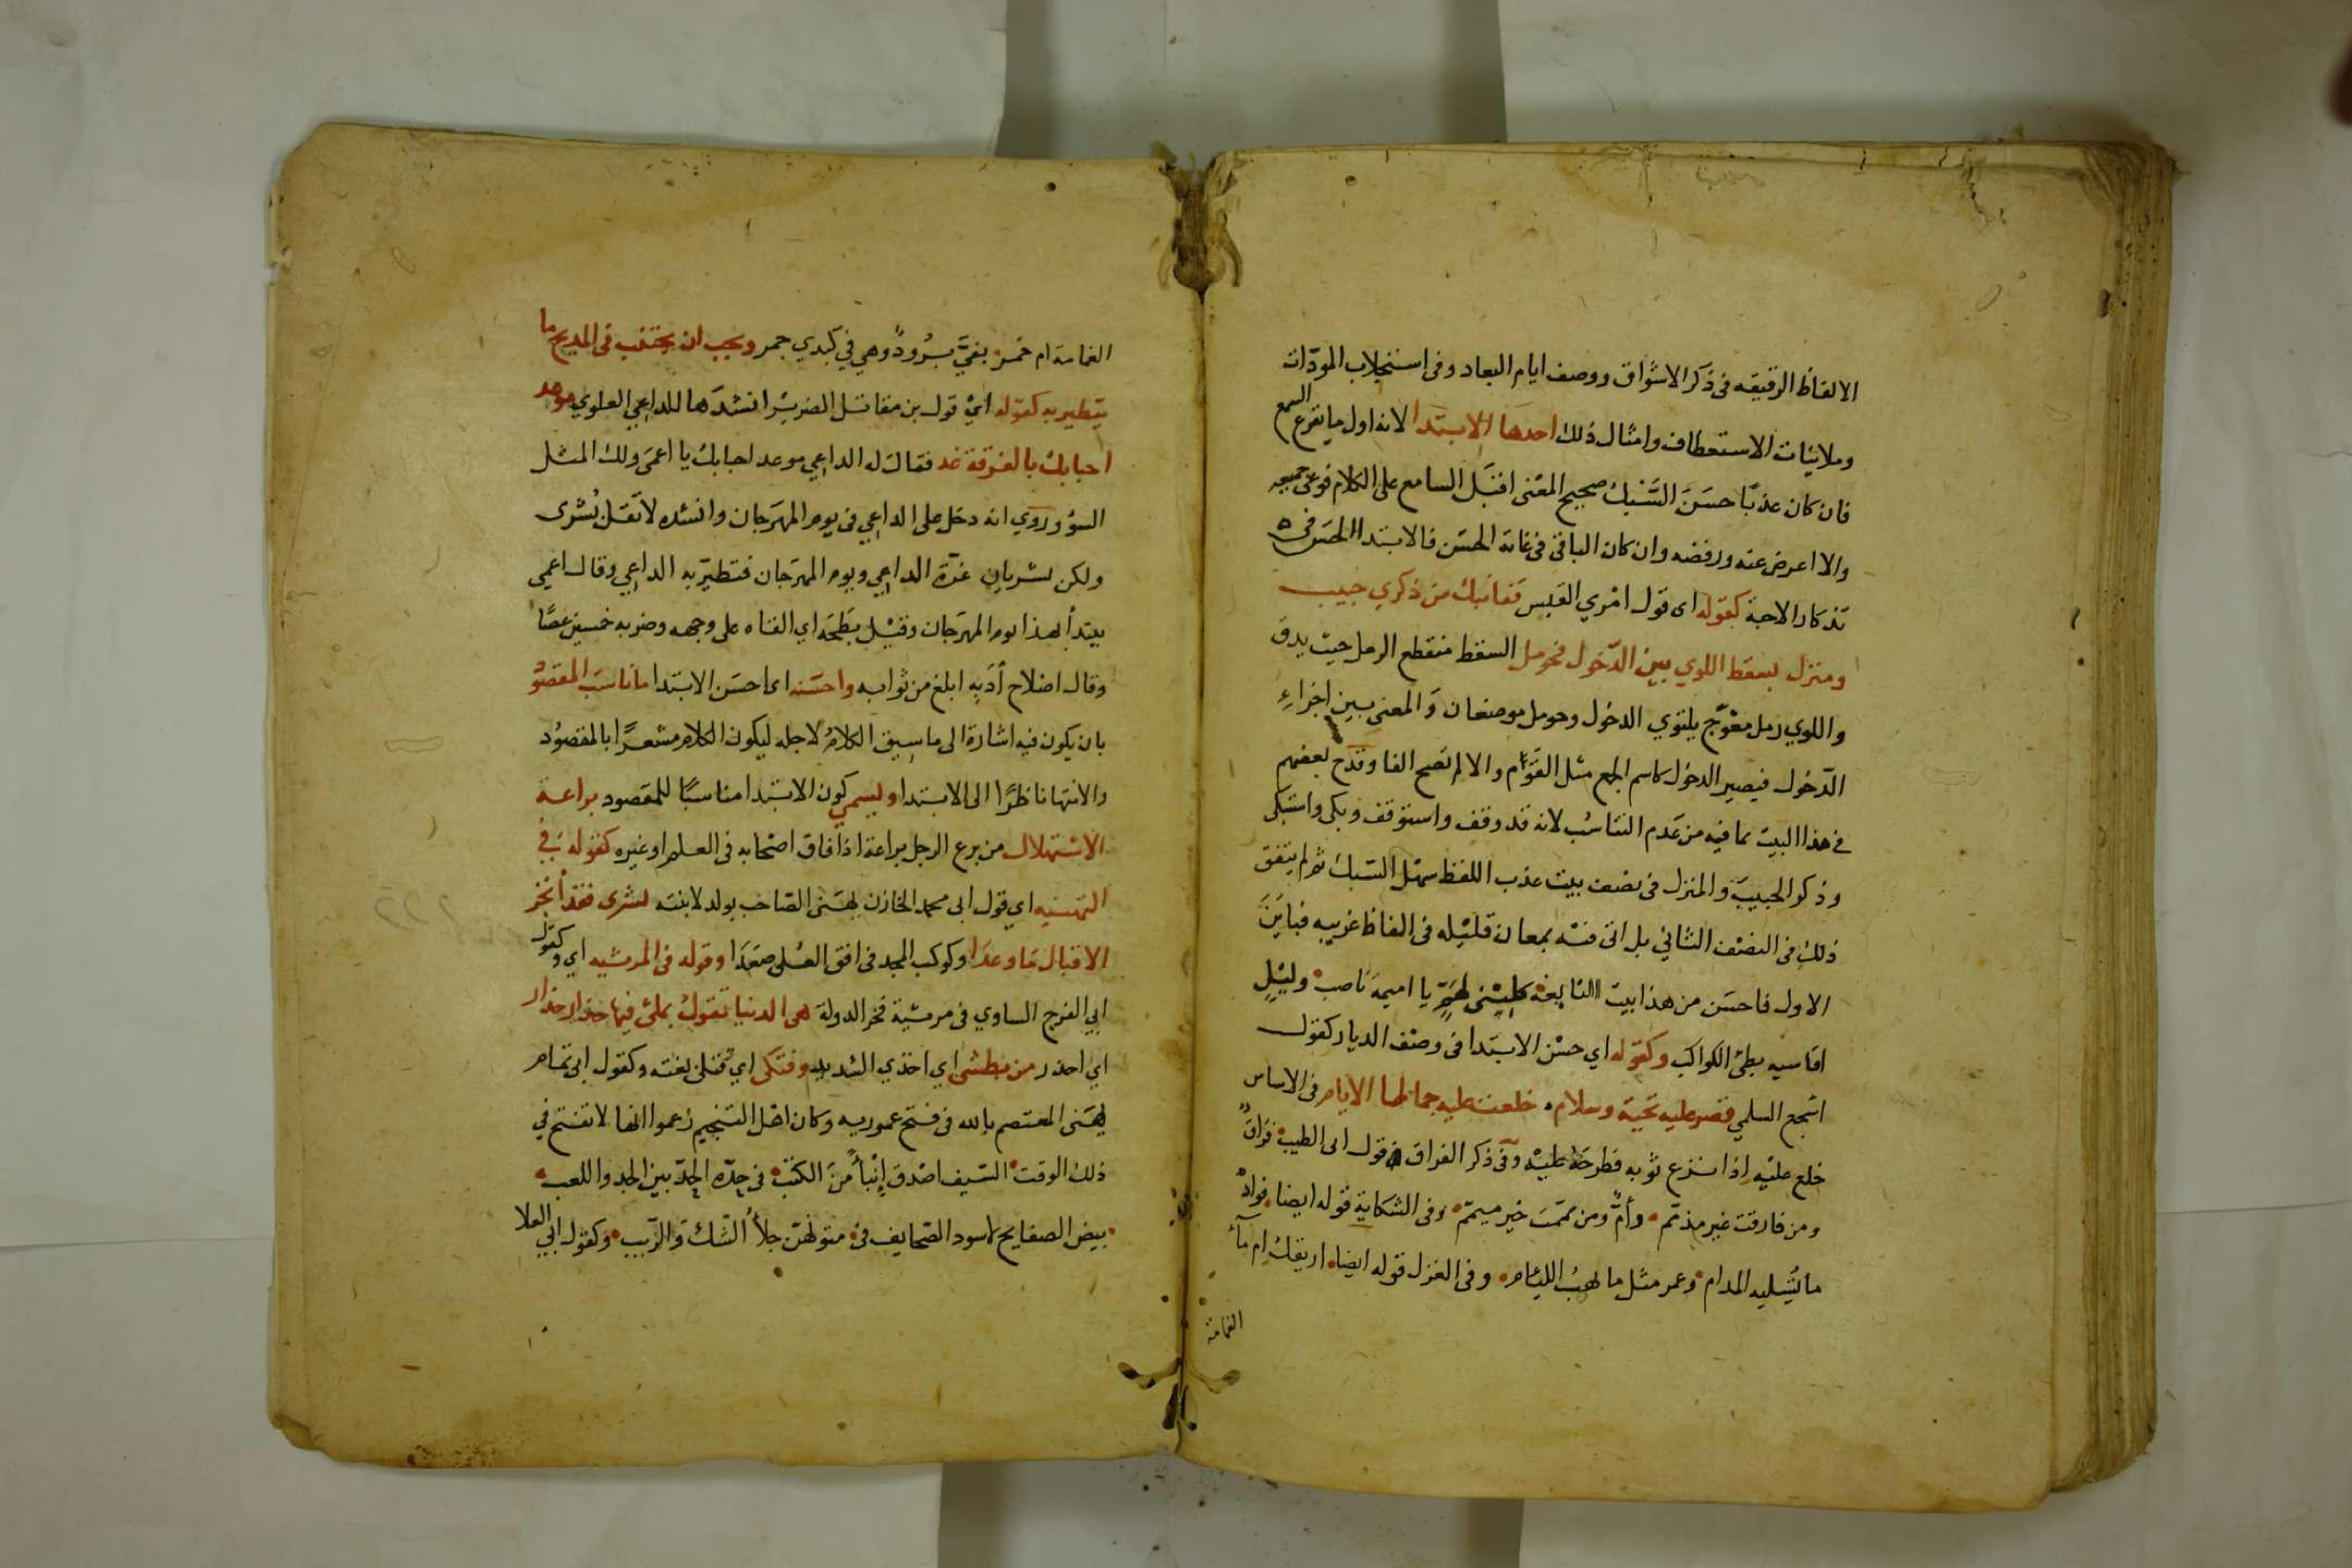 الالفاظ الرقيقه فى ذكر الاشواق ووصف ايام البعاد وفى استنجلاب المودّات
وملاينات الاستعطاف وامثال ذلك احدها الابتدا لانه اول ما يقرع السمع
فان كان عذبًا حسَنَ السَّبْك صحيح المعنى اقبَل السامع على الكلام فوعى جميعه
والا اعرض عنه ورفضه وان كان الباقى فى غاية الحسَن فالابتدا الحسَن فى
تذكار الاحبة كقوله اى قول امْرِي القيس قفا نبك من ذكري حبيب
ومنزل بسقط اللوي بين الدّخول فحومل السقط منقطع الرمل حيث يدق
واللوي رمل معوّج يلتوي الدخول وحومل موضعان وَالمعنى بين اجزاءِ
الدّخول فيصير الدخول كاسم الجمع مثل القوم والا لم تصح الفا وقدح بعضهم
فى هذا البيت بما فيه من عَدم التناسُب لانه قد وقف واستوقف وبكى واستبكى
وذكر الحبيبَ والمنزل فى نصف بيت عذب اللفظ سهل السّبك ثم لم يتفق
ذلك فى النصْف الثاني بل اتى فيْه بمعان قليْله فى الفاظ غريبه فباينَ
الاول فاحسَن من هذا بيت النابغه كليْنى لهَمٍّ يا اميمة ناصب وليْلٍ
اقاسيه بطئ الكواكب وكقوله اي حسْن الابتدا فى وصْف الديار كقول
اشجع السلمي قصر عليه تحيّة وسلام خلعت عليه جمالها الايام فى الاساس
خلع عليْه اذا نزع ثوبه فطرحَهُ عليْه وفى ذكر الفراق قول ابى الطيب فراقٌ
ومن فارقت غير مذمّم وأمٌّ ومن يممّت خير ميمّم وفى الشكاية قوله ايضا فوادٌ
ما تُسْليه المدام وعمر مثل ما تهبُ الليام وفى الغزل قوله ايضا اريقك ام مآءُ
الغمامة
الغمامة ام خمر بفيَّ بَرُودٌ وهي في كبدي جمر ويجب ان يجتنب فى المديح ما
يتطير به كقوله ايْ قول بن مقاتل الضرير انشدَها للداعي العلوي موعد
احبابك بالفرقة غد فقال له الداعي موعد احبابك يا اعمى ولك المثل
السوُ وروي انه دخل على الداعي فى يوم المهرَجان وانشده لا تقل بُشرى
ولكن بشريان غرّة الداعي ويوم المهرَجان فتطيرّ به الداعي وقال اعمى
يبتدأ بهذا يوم المهرَجان وقيْل بطحَه اي القاه على وجهه وضربه خمسين عصًا
وقال اصْلاح أدَبِه ابلغ من ثوابه واحسَنه اى احسَن الابتدا ما ناسَب المقصُوْ
بان يكون فيه اشارة الى ما سيق الكلامُ لاجله ليكون الكلام مشعرًا بالمقصُود
والانتها ناظرًا الى الابتدا ويسمي كون الابتدا مناسبًا للمقصود براعة
الاسْتهلال من برع الرجل براعة اذا فاق اصْحابه فى العلم او غيره كقوله في
التهنيه اي قول ابى محمد الخازن يهنى الصّاحب بولد لابنته بشرى فقد أنجز
الاقبال مَا وعدَا وكوكب المجد فى افق العُلى صَعَدَا وقوله فى المرثيه اي وكقول
ابي الفرج الساوي فى مرثية فخر الدولة هى الدنيا تقولُ بملئ فيها حذار حذار
اي احذر من بطشى اي اخذي الشديد وفتكى اي قتلى بغتة وكقول ابى تمام
يهنى المعتصم بالله فى فتح عموريه وكان اهْل التنجيم زعموا انها لا تفتح في
ذلك الوقت السّيف اصْدق إنْبأً منَ الكتبِ فى حِدّه الحدّ بين الجد واللعب
بيض الصفايح لا سود الصّحايف فى متونهنّ جلأُ الشّك وَالرّيب وكقول ابي العلا